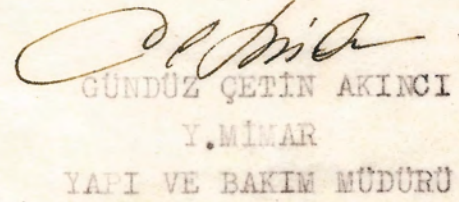 GÜNDÜZ ÇETİN AKINCI
Y.MİMAR
YAPI VE BAKIM MÜDÜRÜ